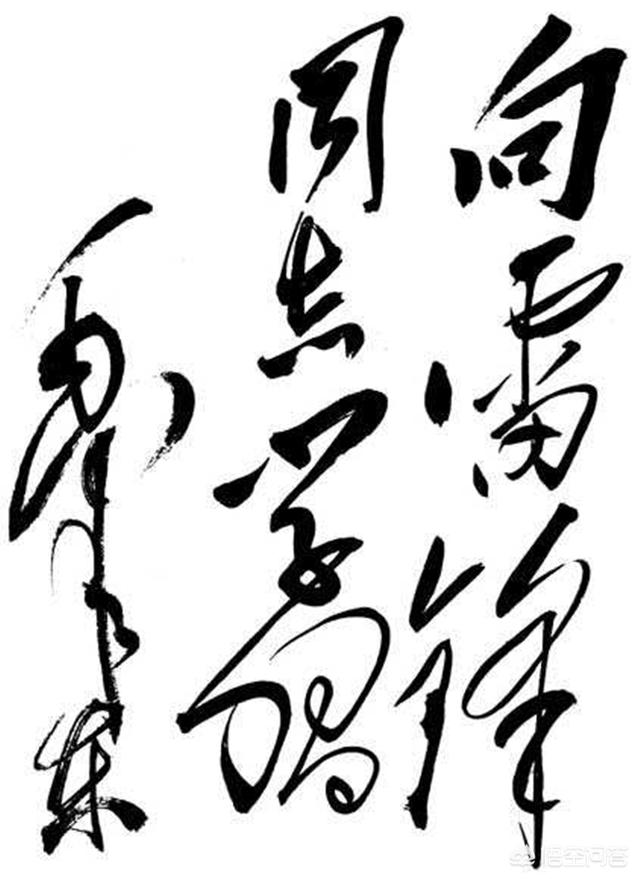 向雷锋
同志学习
毛泽东
悟空问答